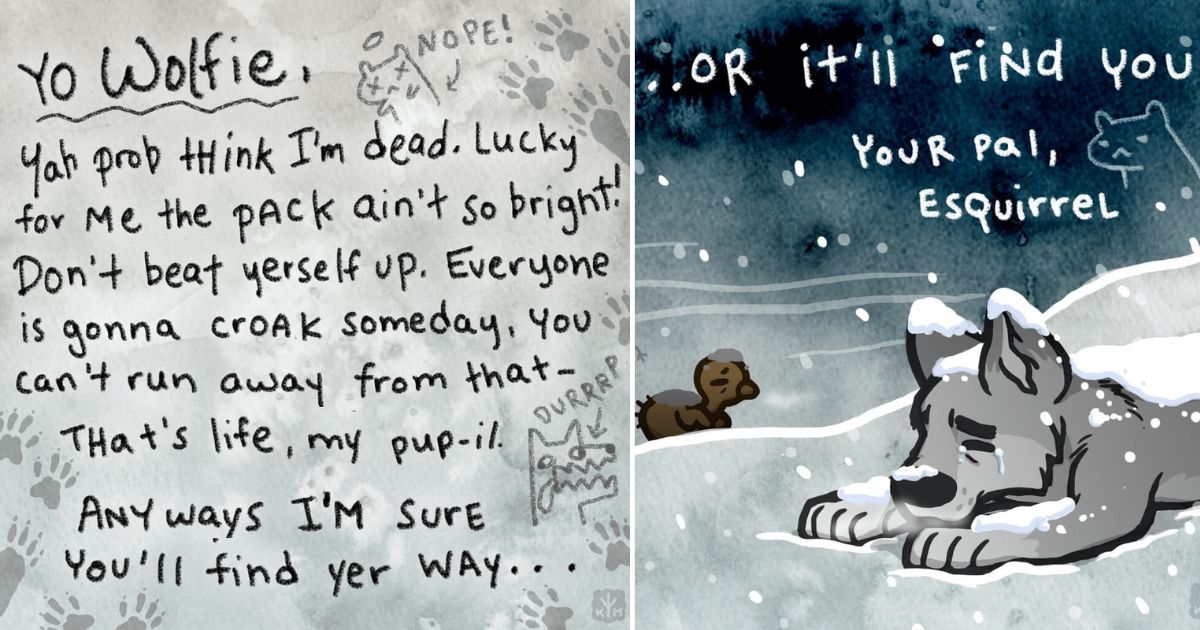 Yo Wolfie,
NOPE!
Yah prob think I'm dead. Lucky
for me the pack ain't so bright!
Don't beat yerself up. Everyone
is gonna croak someday, you
can't run away from that-
That's life, my pup-il.
DURRRP
Anyways I'm sure
you'll find yer way...
K M
...or it'll find you
Your pal,
Esquirrel